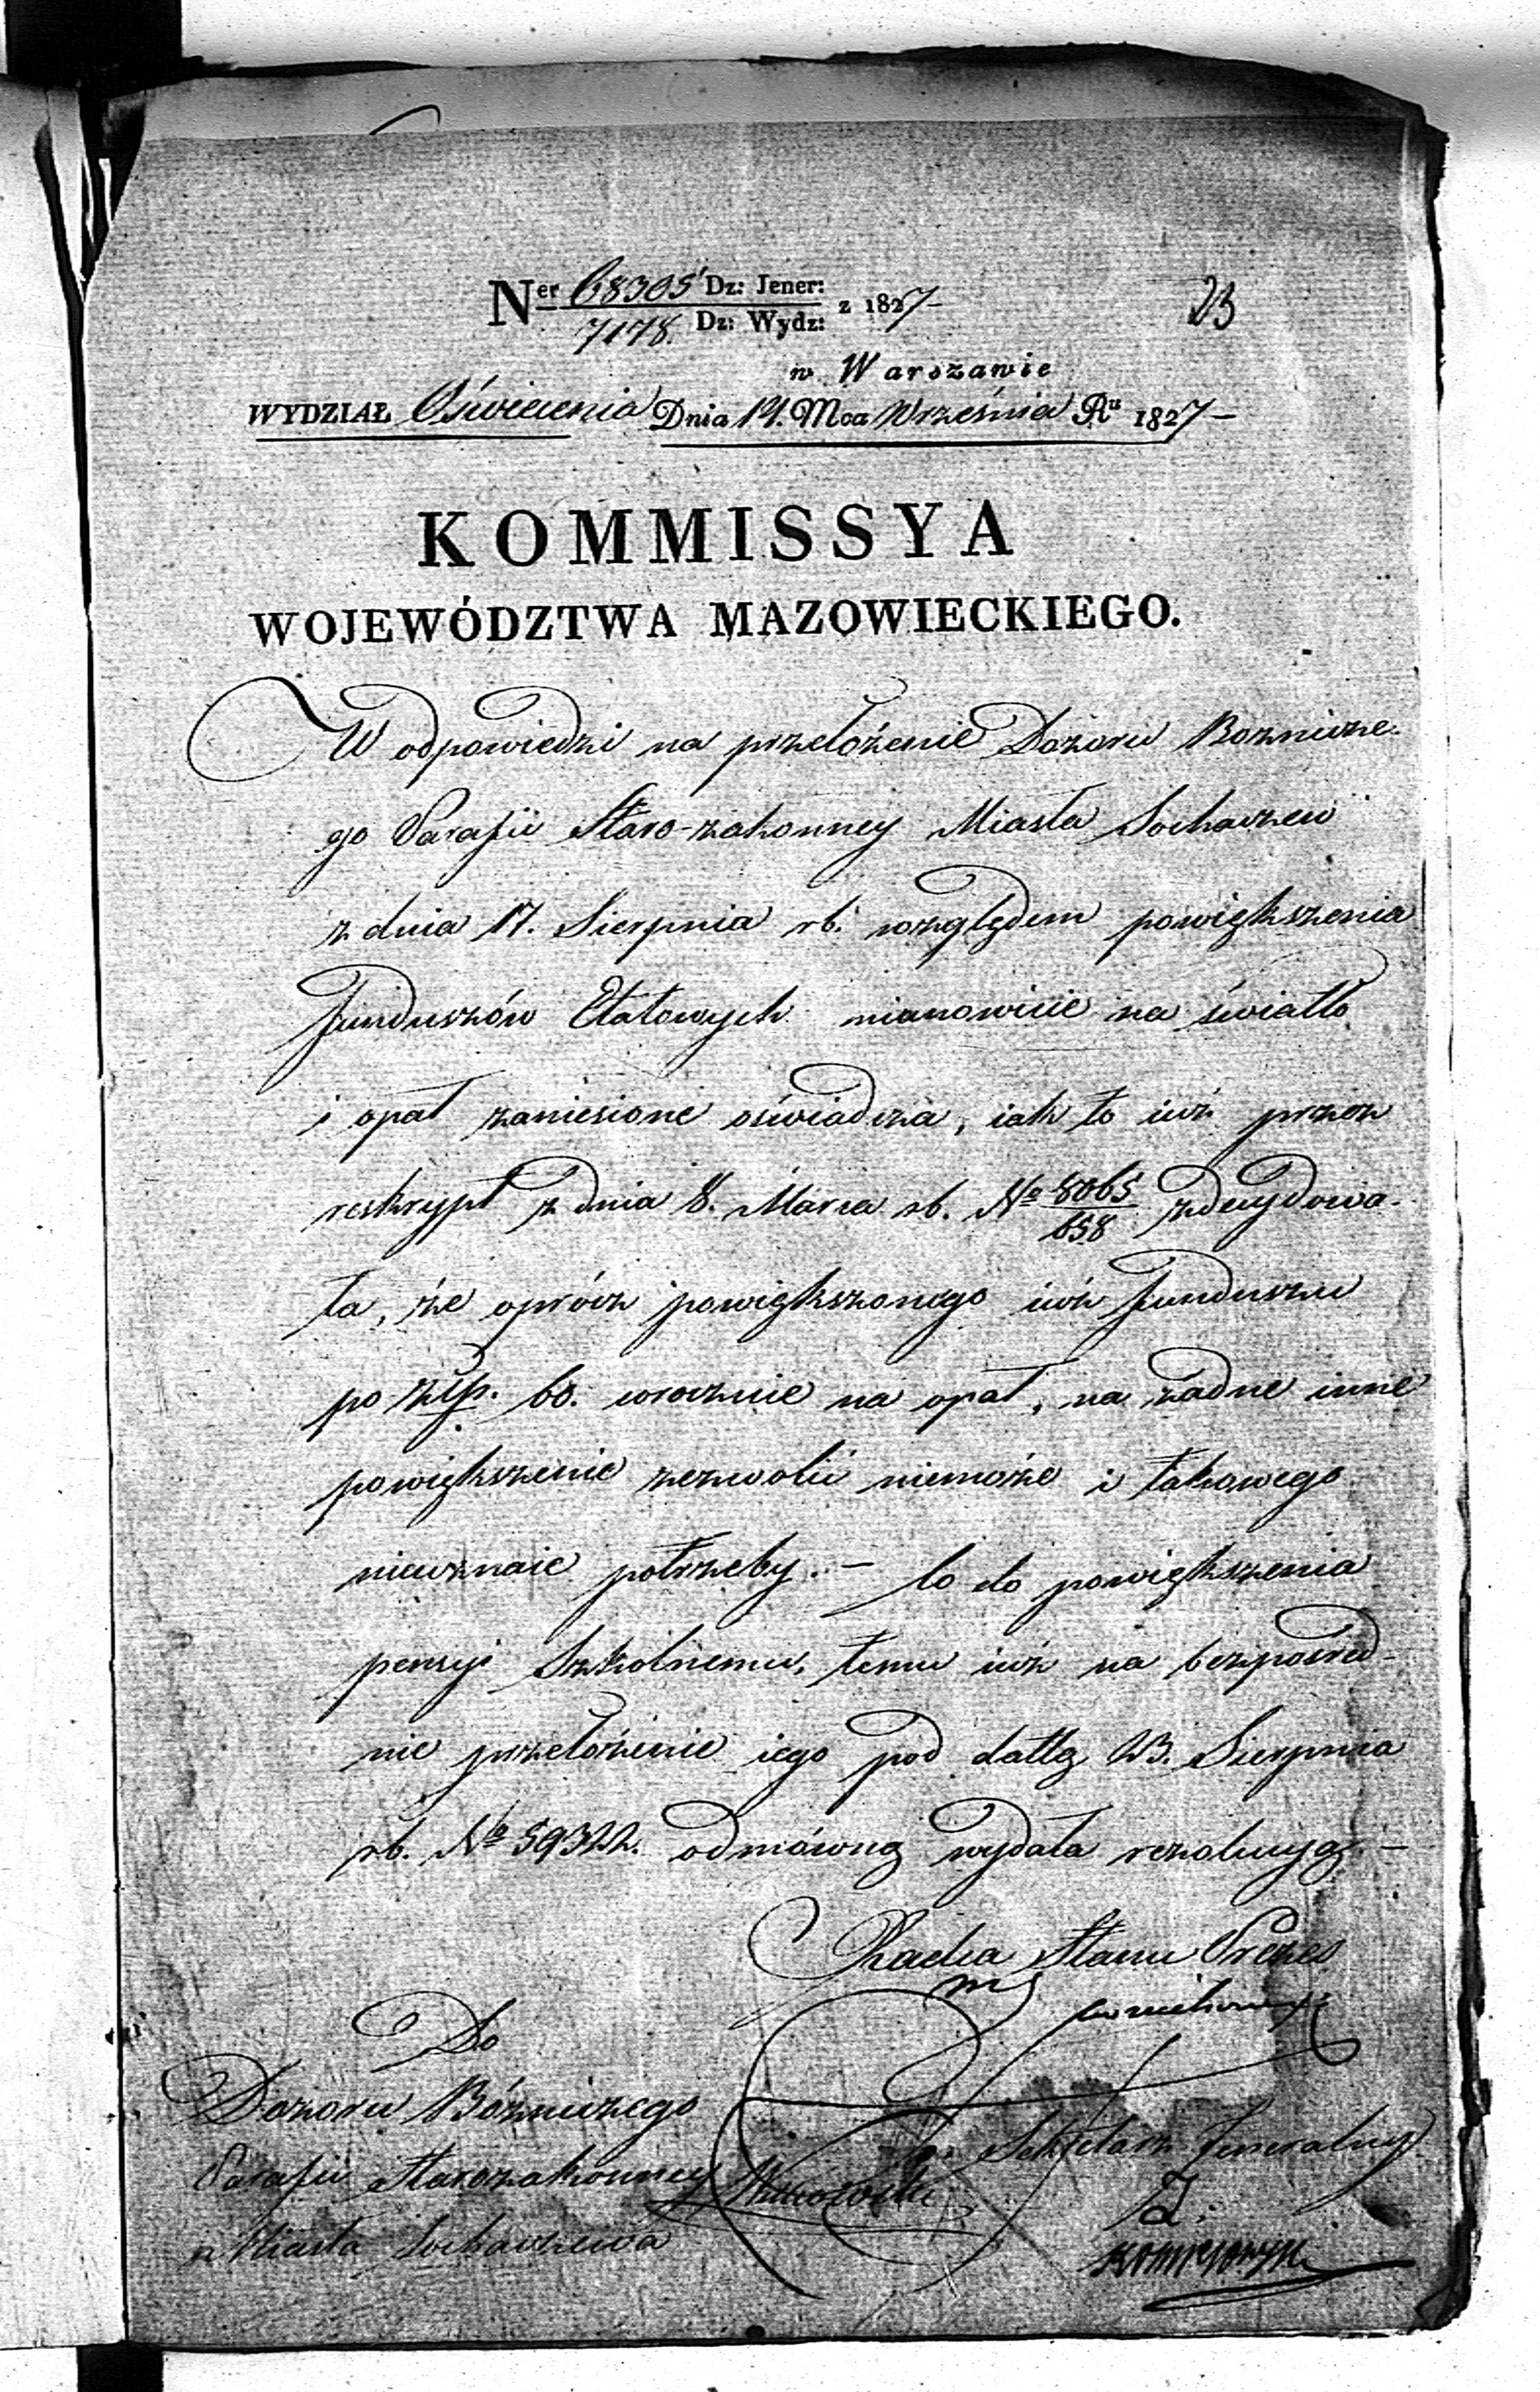 Ner 68305 Dz: Jener:
7178. Dz: Wydz: z 1827
23
w Warszawie
WYDZIAŁ Oświecenia Dnia 14. Mca Września Ru 1827
KOMMISSYA
WOJEWÓDZTWA MAZOWIECKIEGO.
W odpowiedzi na przełożenie Dozoru Boznicze-
go Parafii Staro-zakonney Miasta Sochaczew
z dnia 17. Sierpnia rb. względem powiększenia
Funduszów Etatowych mianowicie na światło
i opał zaniesione oświadcza, iak to iuż przez
reskrypt z dnia 8. Marca rb. No 8065/658 zdecydowa-
ła, że oprócz powiększonego iuż Funduszu
po złp. 60. wrocznie na opał, na żadne inne
powiększenie zezwolić niemoże i takowego
nieuznaie potrzeby. – Co do powiększenia
pensyi Szkolnemu, temu iuż na bezpośred-
nie przełożenie iego pod dattą 23. Sierpnia
rb. No 59322. odmówną wydała rezolucyą. –
Radca Stanu Prezes
Do
Dozoru Bóźniczego
Sekretarz Jeneralny
Parafii Starozakonney
z Miasta Sochaczewa